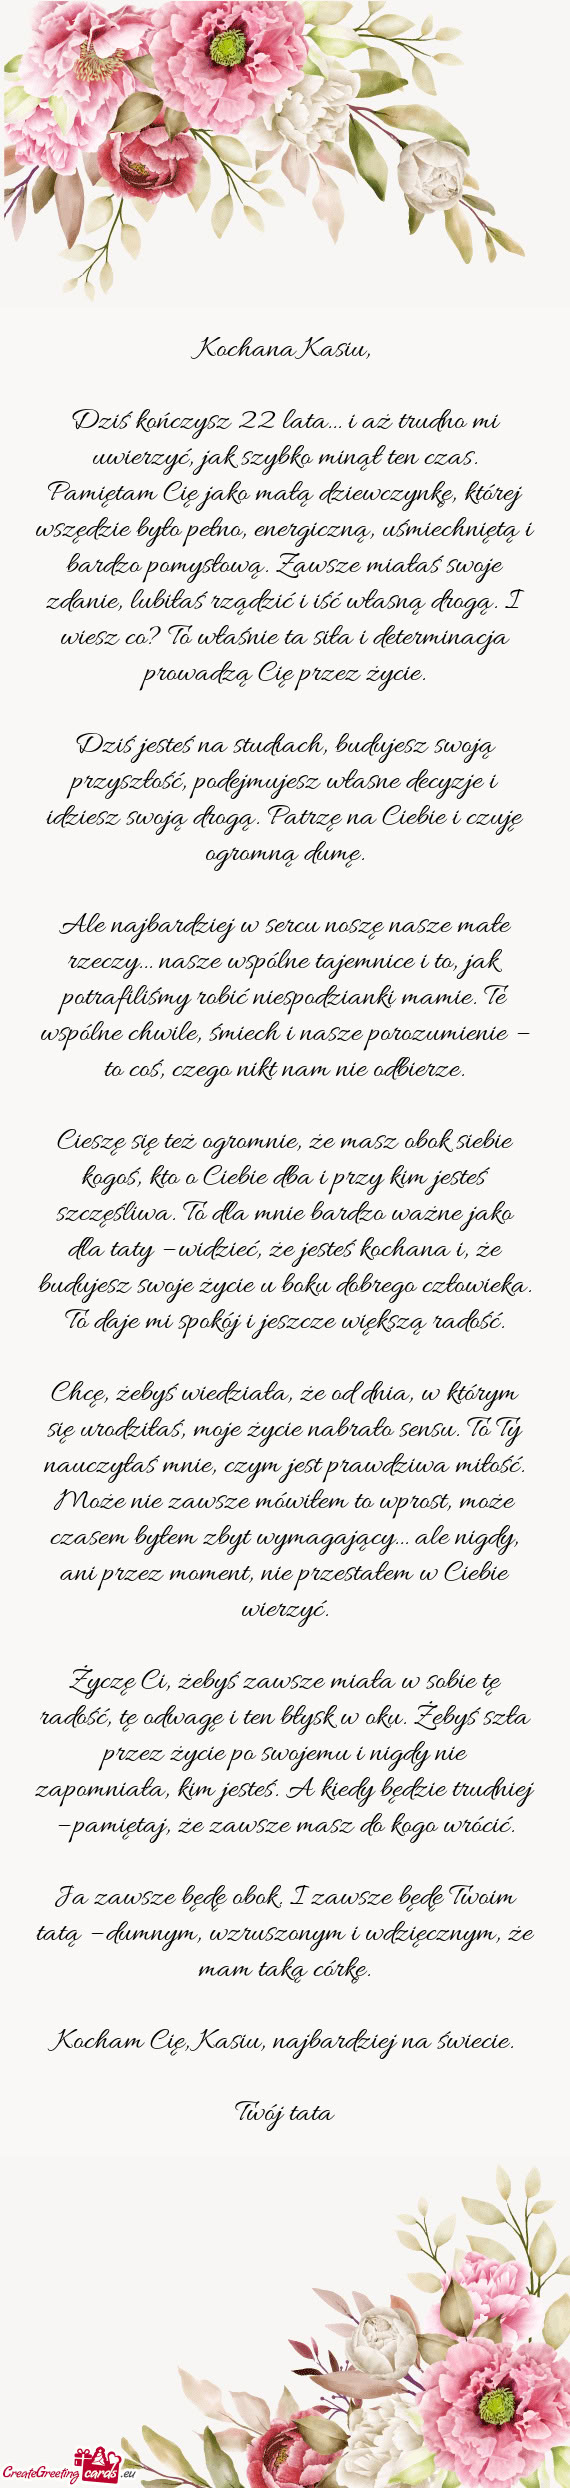 Kochana Kasiu,
Dziś kończysz 22 lata... i aż trudno mi
uwierzyć, jak szybko minął ten czas.
Pamiętam Cię jako małą dziewczynkę, której
wszędzie było pełno, energiczną, uśmiechniętą i
bardzo pomysłową. Zawsze miałaś swoje
zdanie, lubiłaś rządzić i iść własną drogą. I
wiesz co? To właśnie ta siła i determinacja
prowadzą Cię przez życie.
Dziś jesteś na studiach, budujesz swoją
przyszłość, podejmujesz własne decyzje i
idziesz swoją drogą. Patrzę na Ciebie i czuję
ogromną dumę.
Ale najbardziej w sercu noszę nasze małe
rzeczy... nasze wspólne tajemnice i to, jak
potrafiliśmy robić niespodzianki mamie. Te
wspólne chwile, śmiech i nasze porozumienie –
to coś, czego nikt nam nie odbierze.
Cieszę się też ogromnie, że masz obok siebie
kogoś, kto o Ciebie dba i przy kim jesteś
szczęśliwa. To dla mnie bardzo ważne jako
dla taty – widzieć, że jesteś kochana i, że
budujesz swoje życie u boku dobrego człowieka.
To daje mi spokój i jeszcze większą radość.
Chcę, żebyś wiedziała, że od dnia, w którym
się urodziłaś, moje życie nabrało sensu. To Ty
nauczyłaś mnie, czym jest prawdziwa miłość.
Może nie zawsze mówiłem to wprost, może
czasem byłem zbyt wymagający... ale nigdy,
ani przez moment, nie przestałem w Ciebie
wierzyć.
Życzę Ci, żebyś zawsze miała w sobie tę
radość, tę odwagę i ten błysk w oku. Żebyś szła
przez życie po swojemu i nigdy nie
zapomniała, kim jesteś. A kiedy będzie trudniej
– pamiętaj, że zawsze masz do kogo wrócić.
Ja zawsze będę obok. I zawsze będę Twoim
tatą – dumnym, wzruszonym i wdzięcznym, że
mam taką córkę.
Kocham Cię, Kasiu, najbardziej na świecie.
Twój tata
CreateGreeting cards .eu